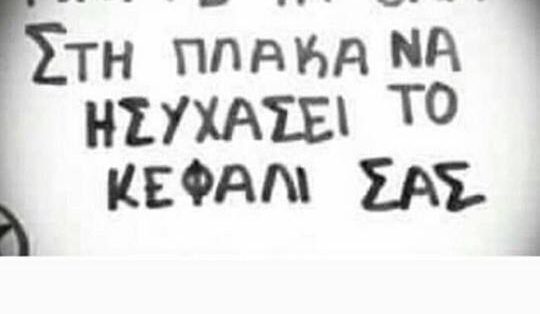 ΣΤΗ ΠΛΑΚΑ ΝΑ
ΗΣΥΧΑΣΕΙ ΤΟ
ΚΕΦΑΛΙ ΣΑΣ